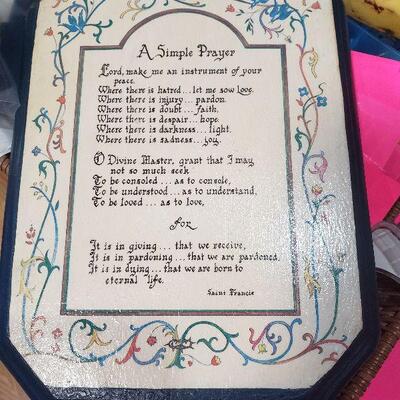 A Simple Prayer
Lord, make me an instrument of your
peace.
Where there is hatred ... let me sow love.
Where there is injury ... pardon.
Where there is doubt ... faith.
Where there is despair ... hope.
Where there is darkness ... light.
Where there is sadness ... joy.
O Divine Master, grant that I may
not so much seek
To be consoled ... as to console,
To be understood ... as to understand,
To be loved ... as to love,
for
It is in giving ... that we receive,
It is in pardoning ... that we are pardoned,
It is in dying ... that we are born to
eternal life.
Saint Francis